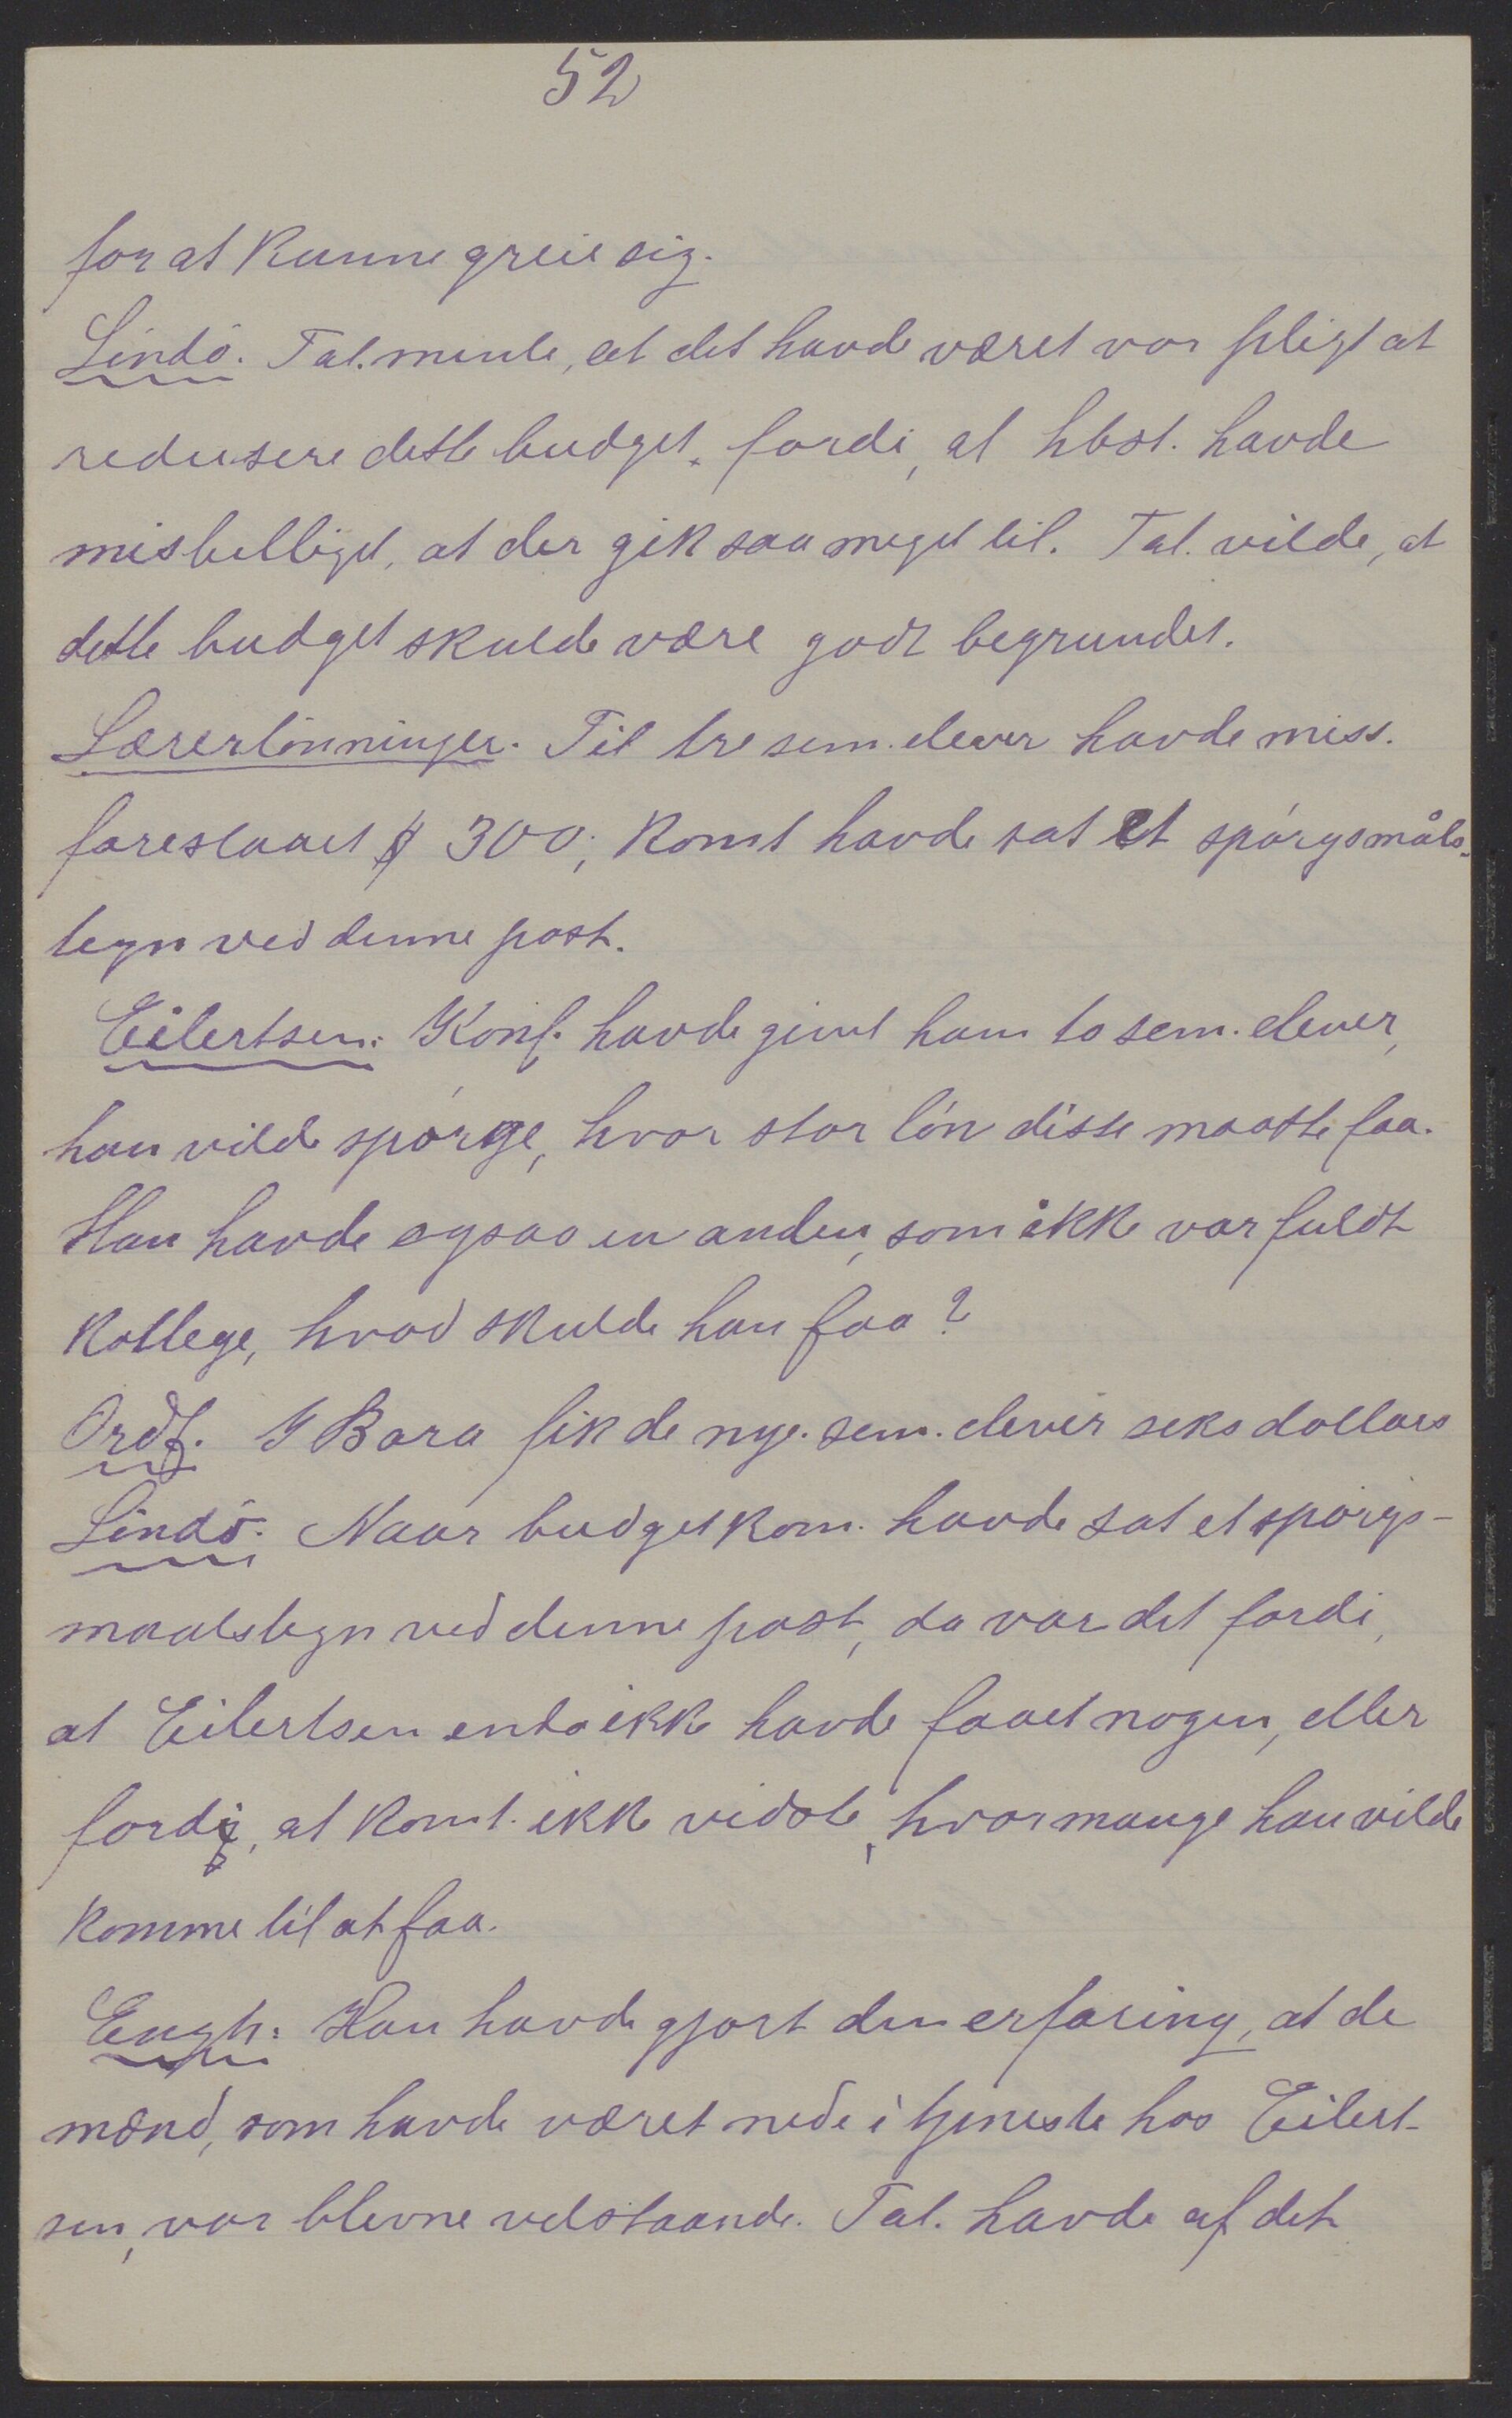 52
for at kunne greie sig.
Lindö. Tal. mente, at det havde været vor pligt at
redusere dette budget, fordi, at hbst. havde
misbilliget, at der gik saa meget til. Tal. vilde, at
dette budget skulde være godt begrundet.
Lærerlönninger. Til tre sem. elever havde miss.
foreslaaet $ 300; komt havde sat et spörgsmåls-
tegn ved denne post.
Eilertsen: Konf. havde givet ham to sem. elever,
han vilde spörge, hvor stor lön disse maatte faa.
Han havde ogsaa en anden, som ikke var fuldt
kollege, hvad skulde han faa?
Ordf. I Bara fik de nye sem. elever seks dollars
Lindö. Naar budgetkom. havde sat et spörgs-
maalstegn ved denne post, da var det fordi,
at Eilertsen enda ikke havde faaet nogen, eller
fordi, at komt. ikke vidste, hvor mange han vilde
komme til at faa.
Engh: Han havde gjort den erfaring, at de
mænd, som havde været nede i tjeneste hos Eilert-
sen, var blevne velstaande. Tal. havde af det